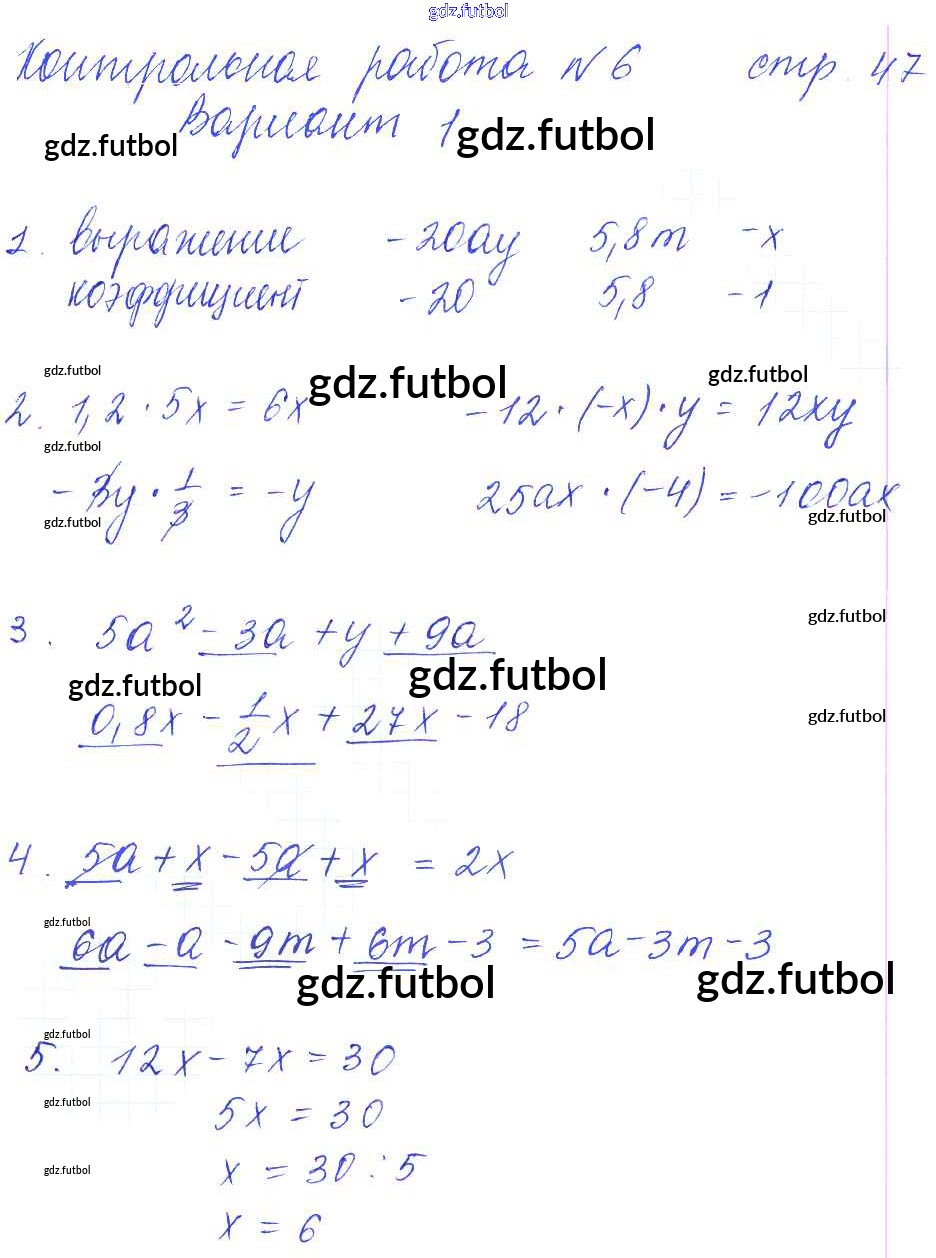 gdz.futbol
Контрольная работа № 6 стр. 47
Вариант 1
gdz.futbol gdz.futbol
1. выражение -20ay 5,8m -x
коэффициент -20 5,8 -1
gdz.futbol gdz.futbol gdz.futbol
2. 1,2 · 5x = 6x -12 · (-x) · y = 12xy
gdz.futbol
-3y · 1/3 = -y 25ax · (-4) = -100ax
gdz.futbol gdz.futbol
3. 5a² - 3a + y + 9a
gdz.futbol
gdz.futbol gdz.futbol
0,8x - 1/2 x + 27x - 18
gdz.futbol
4. 5a + x - 5a + x = 2x
gdz.futbol
6a - a - 9m + 6m - 3 = 5a - 3m - 3
gdz.futbol gdz.futbol
gdz.futbol
5. 12x - 7x = 30
gdz.futbol
5x = 30
gdz.futbol
x = 30 : 5
x = 6